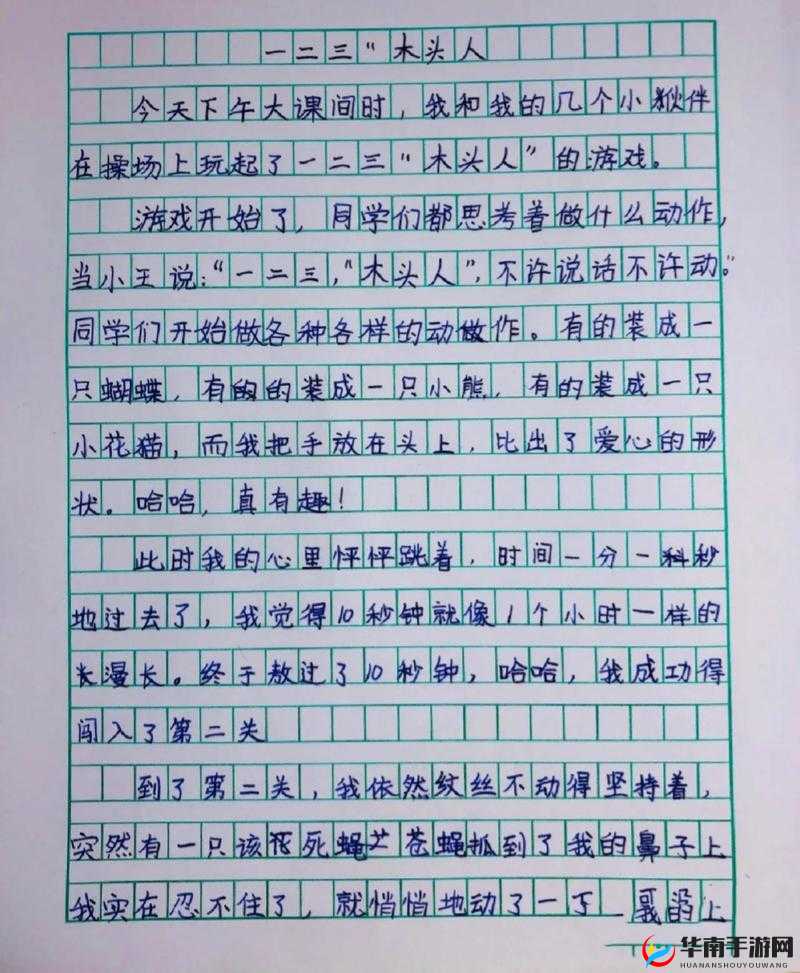 一二三“木头人
今天下午大课间时，我和我的几个小伙伴
在操场上玩起了一二三“木头人”的游戏。
游戏开始了，同学们都思考着做什么动作，
当小王说：“一二三，“木头人”，不许说话不许动。”
同学们开始做各种各样的动做作。有的装成一
只蝴蝶，有的的装成一只小熊，有的装成一只
小花猫，而我把手放在头上，比出了爱心的形
状。哈哈，真有趣！
此时我的心里怦怦跳着，时间一分一秒
地过去了，我觉得10秒钟就像1个小时一样的
长漫长。终于熬过了10秒钟，哈哈，我成功得
闯入了第二关
到了第二关，我依然纹丝不动得坚持着，
突然有一只该死蝇苍蝇抓到了我的鼻子上
我实在忍不住了，就悄悄地动了一下 上
华南手游网
HUANANSHOUYOUWANG